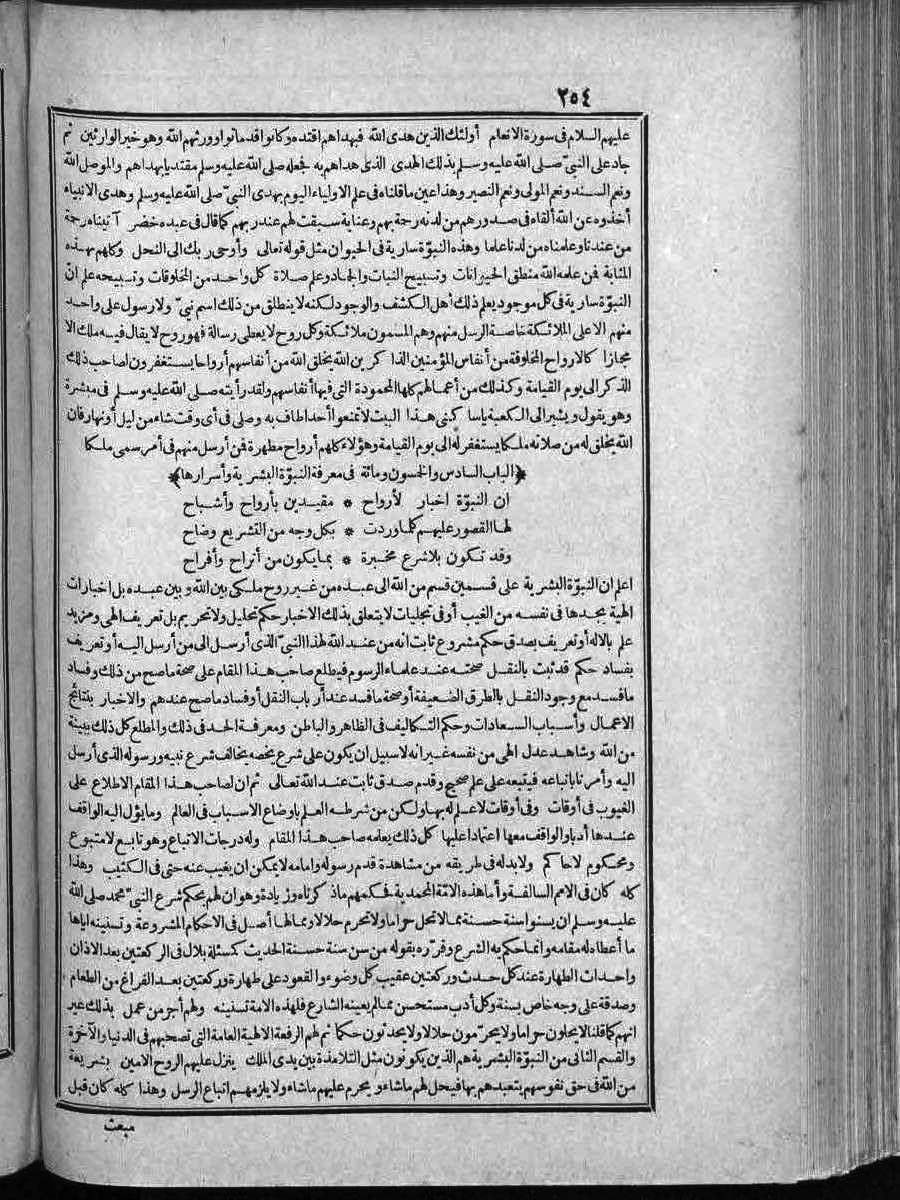 ٢٥٤
عليهم السلام فى سورة الانعام أولئك الذين هدى الله فبهداهم اقتده وكانوا قد ماتوا وورثهم الله وهو خير الوارثين ثم
جاد على النبىّ صلى الله عليه وسلم بذلك الهدى الذى هداهم به فجعله صلى الله عليه وسلم مقتديا بهداهم والموصل الله
ونعم السند ونعم المولى ونعم النصير وهذا عين ما قلناه فى علم الاولياء اليوم بهدى النبىّ صلى الله عليه وسلم وهدى الانبياء
أخذوه عن الله ألقاه فى صدورهم من لدنه رحة بهم وعناية سبقت لهم عند ربهم كما قال فى عبده خضر آتيناه رحة
من عندنا وعلمناه من لدنا علما وهذه النبوّة سارية فى الحيوان مثل قوله تعالى وأوحى ربك الى النحل وكلهم بهذه
المثابة فمن علمه الله منطق الحيوانات وتسبيح النبات والجماد وعلم صلاة كل واحد من المخلوقات وتسبيحه علم انّ
النبوّة سارية فى كل موجود يعلم ذلك أهل الكشف والوجود لكنه لا ينطلق من ذلك اسم نبىّ ولا رسول على واحد
منهم الا على الملائكة خاصة الرسل منهم وهم المسمون ملائكة وكل روح لا يعطى رسالة فهو روح لا يقال فيه ملك الا
مجازا كالارواح المخلوقة من أنفاس المؤمنين الذا كرين الله يخلق الله من أنفاسهم أرواحا يستغفرون لصاحب ذلك
الذكر الى يوم القيامة وكذلك من أعمالهم كلها المحمودة التى فيها أنفاسهم ولقد رأيته صلى الله عليه وسلم فى مبشرة
وهو يقول ويشير الى الكعبة ياسا كنى هذا البيت لا تمنعوا أحدا طاف به وصلى فى أى وقت شاء من ليل أو نهار فان
الله يخلق له من صلاته ملكا يستغفر له الى يوم القيامة وهؤلاء كلهم أرواح مطهرة فمن أرسل منهم فى أمر سمى ملكا
﴿الباب السادس والخسون ومائة فى معرفة النبوّة البشرية وأسرارها﴾
ان النبوّة اخبار لأرواح * مقيدين بأرواح وأشباح
لها القصور عليهم كلما وردت * بكل وجه من التشريع وضاح
وقد تكون بلا شرع مخبرة * بما يكون من أتراح وأفراح
اعلم ان النبوّة البشرية على قسمين قسم من الله الى عبده من غير روح ملكى بين الله وبين عبده بل اخبارات
الهية يجدها فى نفسه من الغيب أو فى تجليات لا يتعلق بذلك الاخبار حكم تحليل ولا تحريم بل تعريف الهى ومزيد
علم بالاله أو تعريف بصدق حكم مشروع ثابت انه من عند الله لهذا النبىّ الذى أرسل الى من أرسل اليه أو تعريف
بفساد حكم قد ثبت بالنقل صحته عند علماء الرسوم فيطلع صاحب هذا المقام على صحة ما صح من ذلك وفساد
ما فسد مع وجود النقل بالطرق الضعيفة أو صحة ما فسد عند أرباب النقل أو فساد ما صح عندهم والاخبار بنتائج
الاعمال وأسباب السعادات وحكم التكاليف فى الظاهر والباطن ومعرفة الحد فى ذلك والمطلع كل ذلك ببينة
من الله وشاهد عدل الهى من نفسه غير انه لا سبيل ان يكون على شرع يخصه يخالف شرع نبيه ورسوله الذى أرسل
اليه وأمرنا باتباعه فيتبعه على علم صحيح وقدم صدق ثابت عند الله تعالى ثم ان لصاحب هذا المقام الاطلاع على
الغيوب فى أوقات وفى أوقات لا علم له بها ولكن من شرطه العلم باوضاع الاسباب فى العالم وما يؤل اليه الواقف
عندها أدبا والواقف معها اعتمادا عليها كل ذلك يعلمه صاحب هذا المقام وله درجات الاتباع وهو تابع لا متبوع
ومحكوم لا حاكم ولا بد له فى طريقه من مشاهدة قدم رسوله وامامه لا يمكن ان يغيب عنه حتى فى الكثيب وهذا
كله كان فى الامم السالفة وأما هذه الامّة المحمدية فحكمهم ماذ كرناه وزيادة وهو ان لهم بحكم شرع النبىّ محمد صلى الله
عليه وسلم ان يسنوا سنة حسنة مما لا تحل حراما ولا تحرم حلالا ومما لها أصل فى الاحكام المشروعة وتسنينه اياها
ما أعطاه له مقامه وانما حكم به الشرع وقرّره بقوله من سن سنة حسنة الحديث كمسئلة بلال فى الركعتين بعد الاذان
واحداث الطهارة عند كل حدث وركعتين عقيب كل وضوء والقعود على طهارة وركعتين بعد الفراغ من الطعام
وصدقة على وجه خاص بسنة وكل أدب مستحسن مما لم يعينه الشارع فلهذه الامة تسنينه ولهم أجر من عمل بذلك غير
انهم كما قلنا لا يحلون حراما ولا يحرّمون حلالا ولا يحدثون حكما ثم لهم الرفعة الالهية العامة التى تصحبهم فى الدنيا والآخرة
والقسم الثانى من النبوّة البشرية هم الذين يكونون مثل التلامذة بين يدى الملك ينزل عليهم الروح الامين بشريعة
من الله فى حق نفوسهم يتعبدهم بها فيحل لهم ما شاء ويحرم عليهم ما شاء ولا يلزمهم اتباع الرسل وهذا كله كان قبل
مبعث